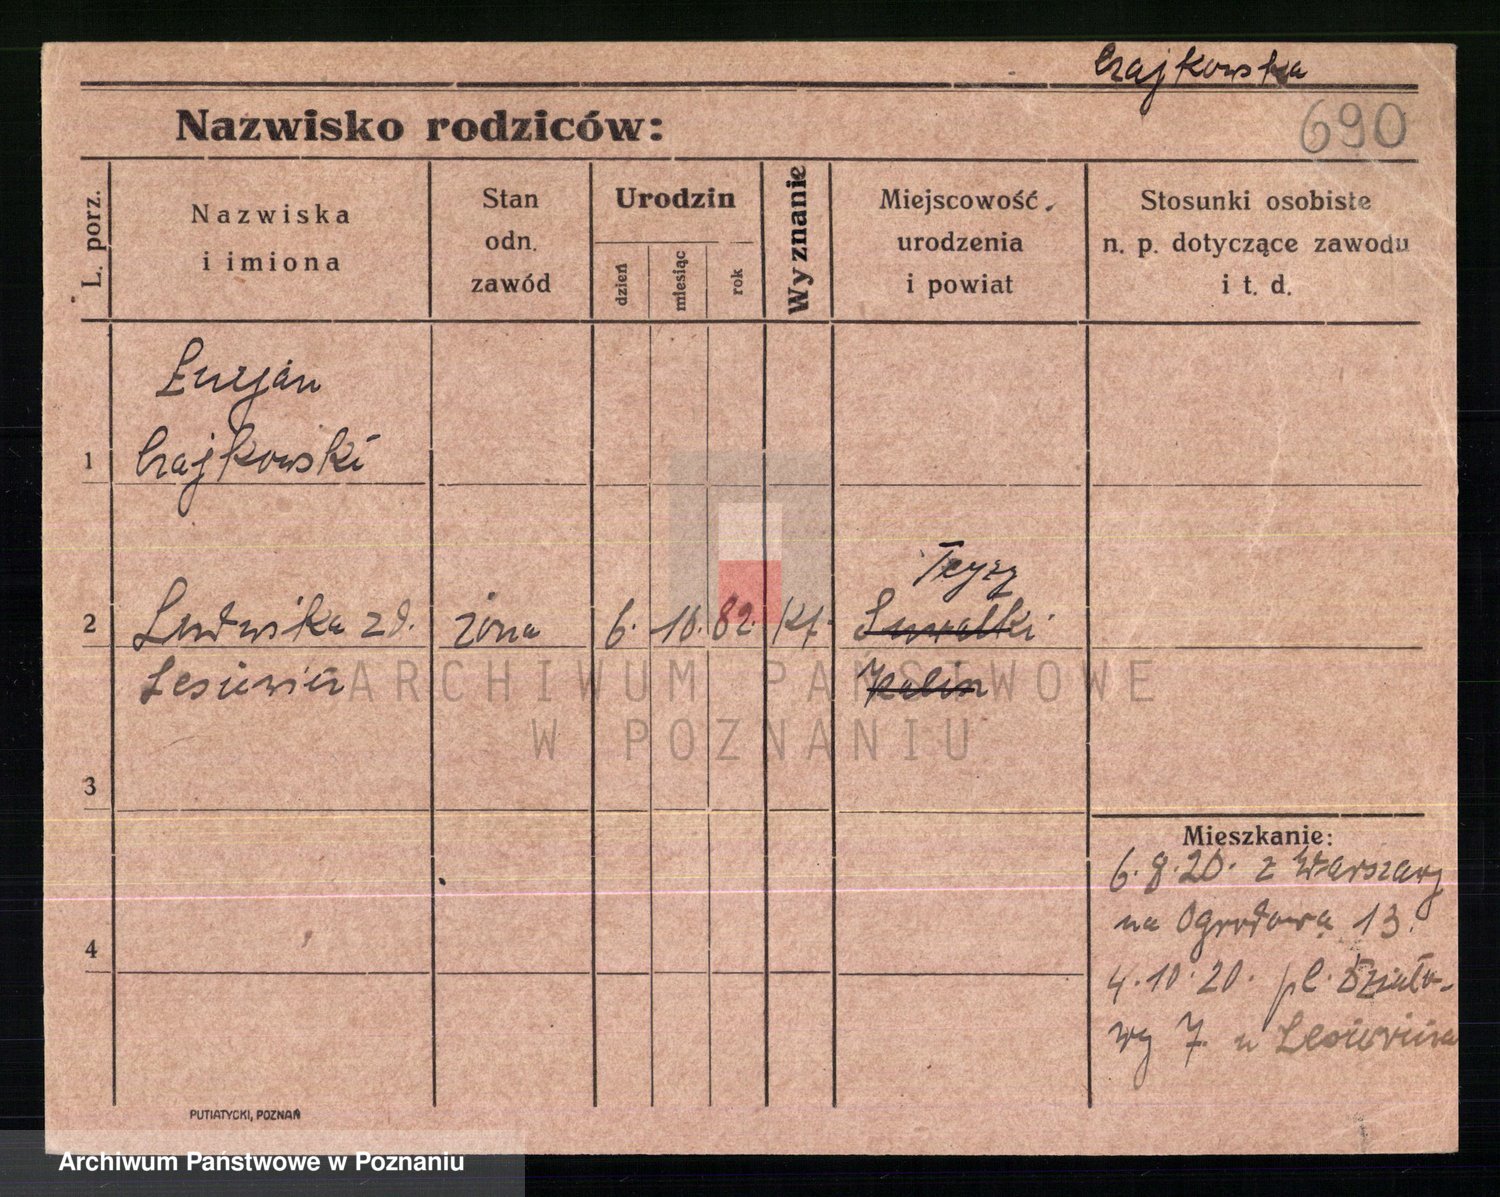 Czajkowska
Nazwisko rodziców:
690
L. porz.
Nazwiska
i imiona
Stan
odn.
zawód
Urodzin
dzień
miesiąc
rok
Wyznanie
Miejscowość
urodzenia
i powiat
Stosunki osobiste
n. p. dotyczące zawodu
i t. d.
1
Lucjan
Czajkowski
2
Ludwika zd.
Lesiewicz
żona
6. 10. 82. kt.
Suwałki
3
4
Mieszkanie:
6.8.20. z Warszawy
na Ogrodowa 13.
4.10.20. pl. Działo-
wy 7 u Lesiewicza
PUTIATYCKI, POZNAŃ
ARCHIWUM PAŃSTWOWE
W POZNANIU
Archiwum Państwowe w Poznaniu